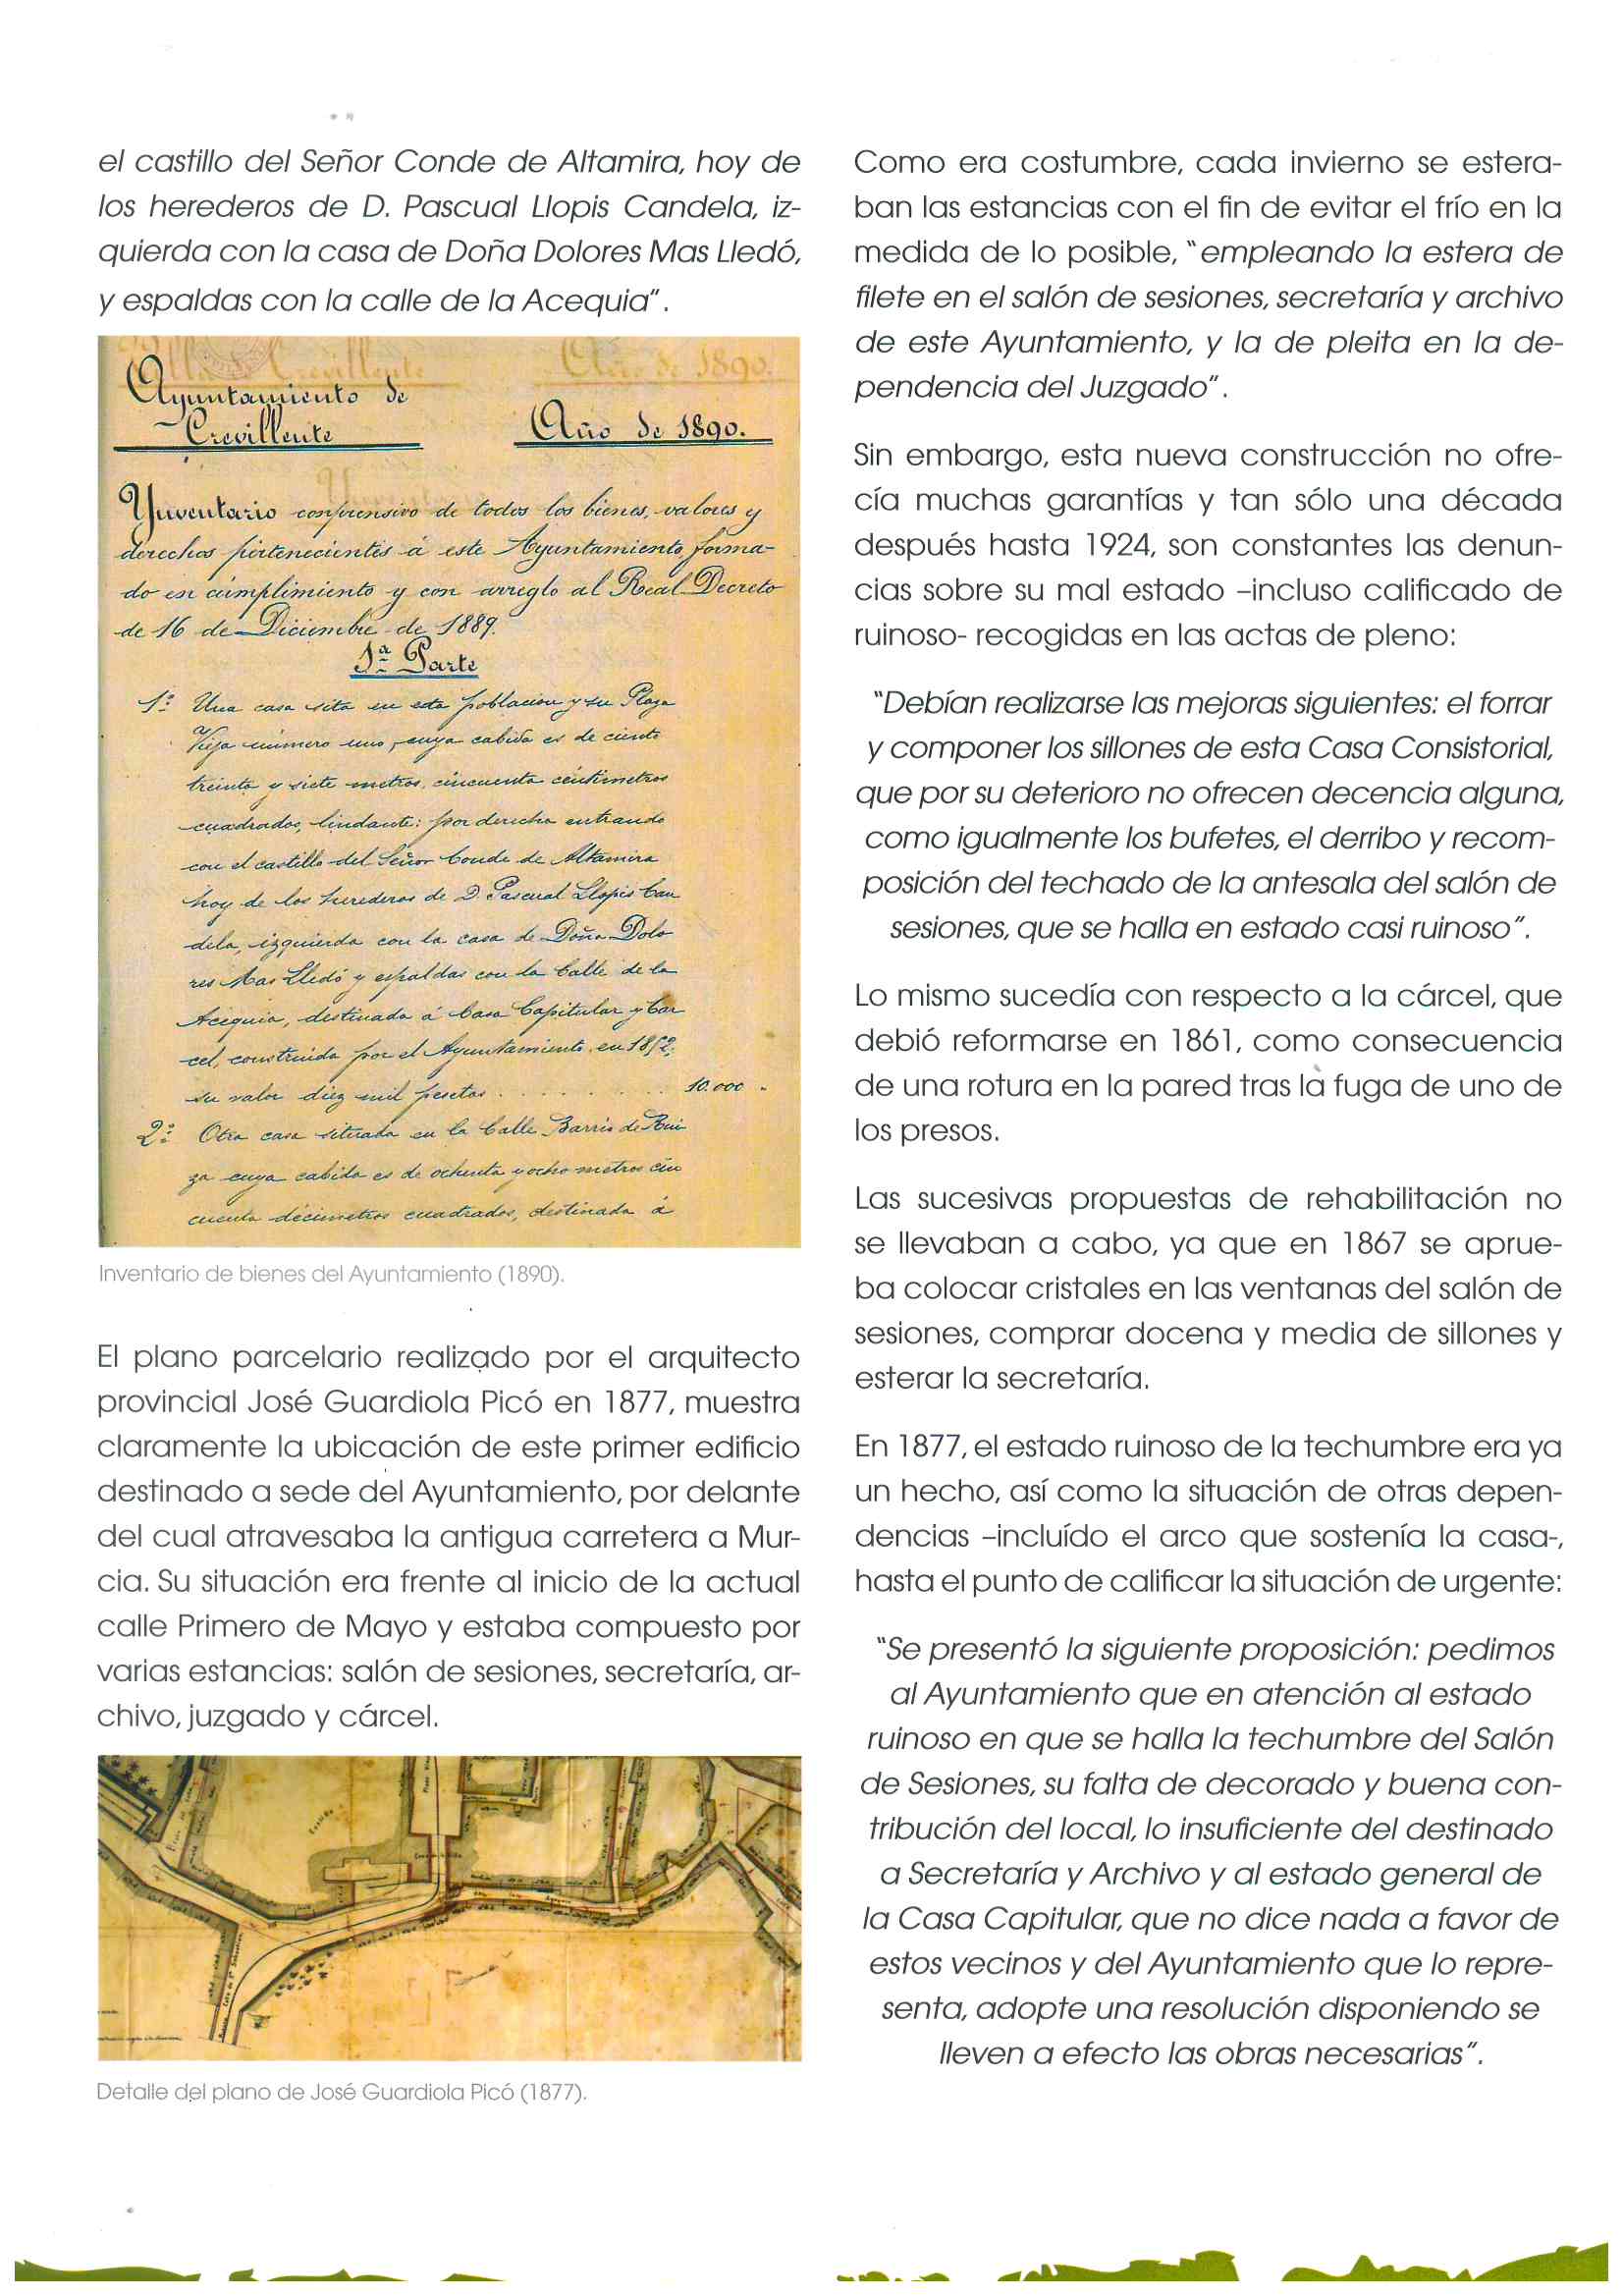 el castillo del Señor Conde de Altamira, hoy de
los herederos de D. Pascual Llopis Candela, iz-
quierda con la casa de Doña Dolores Mas Lledó,
y espaldas con la calle de la Acequia".
Ayuntamiento de
Crevillente
Año de 1890.
Ynventario conprensivo de todos los bienes, valores y
derechos pertenecientes á este Ayuntamiento, forma-
do en cumplimiento y con arreglo al Real Decreto
de 16 de Diciembre de 1889.
1ª Parte
1º Una casa sita en esta poblacion y su Plaza
Vieja número uno, cuya cabida es de ciento
treinta y siete metros, cincuenta centimetros
cuadrados, lindante: por derecha entrando
con el castillo del Señor Conde de Altamira
hoy de los herederos de D. Pascual Llopis Can
dela, izquierda con la casa de Doña Dolo
res Mas Lledó y espaldas con la Calle de la
Acequia, destinada á Casa Capitular y Car
cel, construida por el Ayuntamiento en 1852,
su valor diez mil pesetas . . . . . . . 10.000 "
2º Otra casa situada en la Calle Barrio de Rui
za cuya cabida es de ochenta y ocho metros cin
cuenta décimetros cuadrados, destinada á
Inventario de bienes del Ayuntamiento (1890).
El plano parcelario realizado por el arquitecto
provincial José Guardiola Picó en 1877, muestra
claramente la ubicación de este primer edificio
destinado a sede del Ayuntamiento, por delante
del cual atravesaba la antigua carretera a Mur-
cia. Su situación era frente al inicio de la actual
calle Primero de Mayo y estaba compuesto por
varias estancias: salón de sesiones, secretaría, ar-
chivo, juzgado y cárcel.
Detalle del plano de José Guardiola Picó (1877).
Como era costumbre, cada invierno se estera-
ban las estancias con el fin de evitar el frío en la
medida de lo posible, "empleando la estera de
filete en el salón de sesiones, secretaría y archivo
de este Ayuntamiento, y la de pleita en la de-
pendencia del Juzgado".
Sin embargo, esta nueva construcción no ofre-
cía muchas garantías y tan sólo una década
después hasta 1924, son constantes las denun-
cias sobre su mal estado –incluso calificado de
ruinoso- recogidas en las actas de pleno:
"Debían realizarse las mejoras siguientes: el forrar
y componer los sillones de esta Casa Consistorial,
que por su deterioro no ofrecen decencia alguna,
como igualmente los bufetes, el derribo y recom-
posición del techado de la antesala del salón de
sesiones, que se halla en estado casi ruinoso".
Lo mismo sucedía con respecto a la cárcel, que
debió reformarse en 1861, como consecuencia
de una rotura en la pared tras la fuga de uno de
los presos.
Las sucesivas propuestas de rehabilitación no
se llevaban a cabo, ya que en 1867 se aprue-
ba colocar cristales en las ventanas del salón de
sesiones, comprar docena y media de sillones y
esterar la secretaría.
En 1877, el estado ruinoso de la techumbre era ya
un hecho, así como la situación de otras depen-
dencias –incluído el arco que sostenía la casa-,
hasta el punto de calificar la situación de urgente:
"Se presentó la siguiente proposición: pedimos
al Ayuntamiento que en atención al estado
ruinoso en que se halla la techumbre del Salón
de Sesiones, su falta de decorado y buena con-
tribución del local, lo insuficiente del destinado
a Secretaría y Archivo y al estado general de
la Casa Capitular, que no dice nada a favor de
estos vecinos y del Ayuntamiento que lo repre-
senta, adopte una resolución disponiendo se
lleven a efecto las obras necesarias".